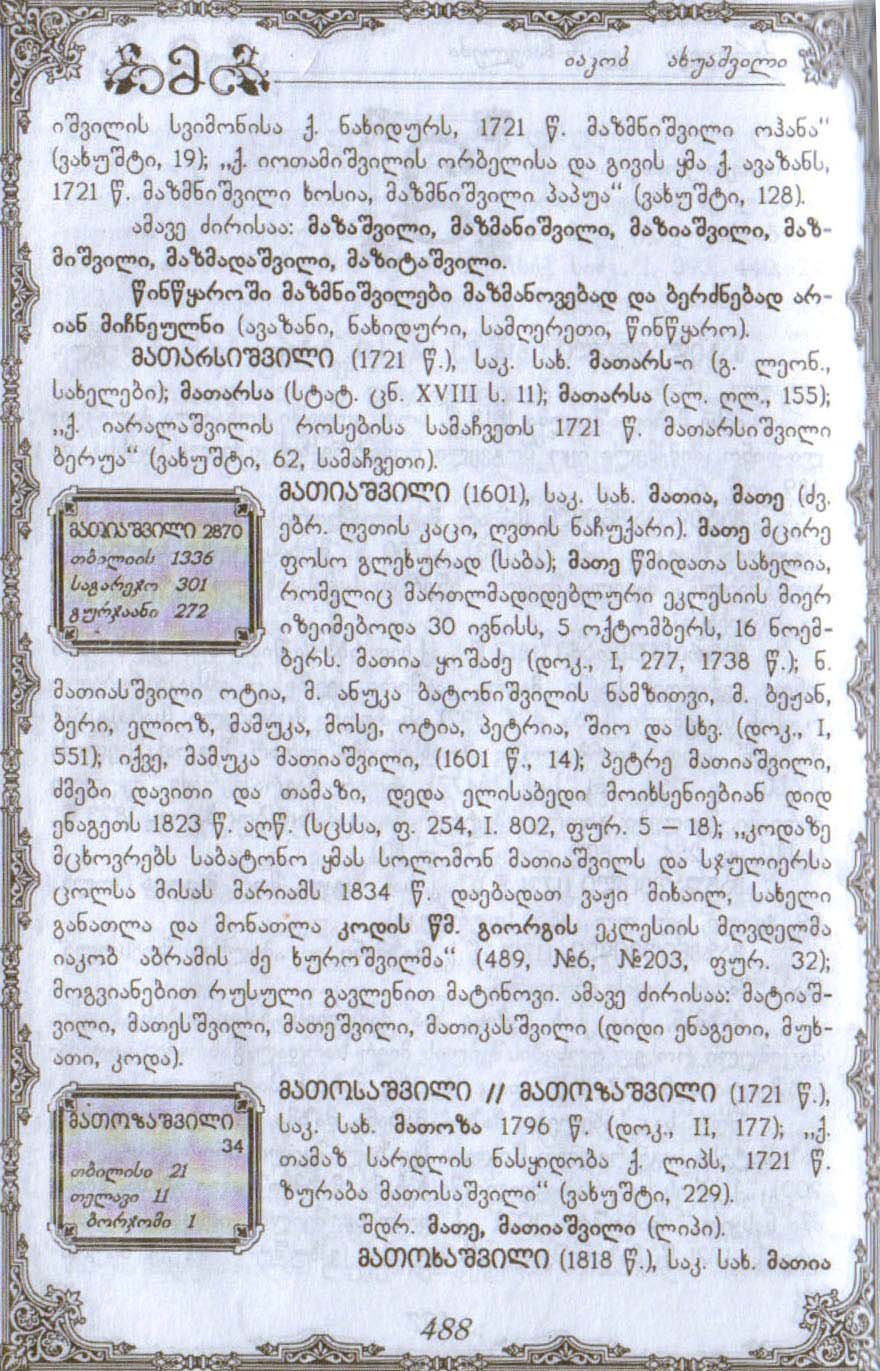 მ
იაკობ ახუაშვილი
იშვილის სვიმონისა ქ. ნახიდურს, 1721 წ. მაზმნიშვილი ოჰანა“
(ვახუშტი, 19); „ქ. იოთამიშვილის ორბელისა და გივის ყმა ქ. ავაზანს,
1721 წ. მაზმნიშვილი ხოსია, მაზმნიშვილი პაპუა“ (ვახუშტი, 128).
ამავე ძირისაა: მაზაშვილი, მაზმანიშვილი, მაზიაშვილი, მაზ-
მიშვილი, მაზმადაშვილი, მაზიტაშვილი.
წინწყაროში მაზმნიშვილები მაზმანოვებად და ბერძნებად არ-
იან მიჩნეულნი (ავაზანი, ნახიდური, სამღერეთი, წინწყარო).
მათარსიშვილი (1721 წ.), საკ. სახ. მათარს-ი (გ. ლეონ.,
სახელები); მათარსა (სტატ. ცნ. XVIII ს. 11); მათარსა (ალ. ღლ., 155);
„ქ. იარალაშვილის როსებისა სამაჩვეთს 1721 წ. მათარსიშვილი
ბერუა“ (ვახუშტი, 62, სამაჩვეთი).
მათიაშვილი (1601), საკ. სახ. მათია, მათე (ძვ.
ებრ. ღვთის კაცი, ღვთის ნაჩუქარი). მათე მცირე
ფოსო გლეხურად (საბა); მათე წმიდათა სახელია,
რომელიც მართლმადიდებლური ეკლესიის მიერ
იზეიმებოდა 30 ივნისს, 5 ოქტომბერს, 16 ნოემ-
ბერს. მათია ყოშაძე (დოკ., I, 277, 1738 წ.); ნ.
მათიასშვილი ოტია, მ. ანუკა ბატონიშვილის ნამზითვი, მ. ბეჟან,
ბერი, ელიოზ, მამუკა, მოსე, ოტია, პეტრია, შიო და სხვ. (დოკ., I,
551); იქვე, მამუკა მათიაშვილი, (1601 წ., 14); პეტრე მათიაშვილი,
ძმები დავითი და თამაზი, დედა ელისაბედი მოიხსენიებიან დიდ
ენაგეთს 1823 წ. აღწ. (სცსსა, ფ. 254, I. 802, ფურ. 5 – 18); „კოდაზე
მცხოვრებს საბატონო ყმას სოლომონ მათიაშვილს და სჯულიერსა
ცოლსა მისას მარიამს 1834 წ. დაებადათ ვაჟი მიხაილ, სახელი
განათლა და მონათლა კოდის წმ. გიორგის ეკლესიის მღვდელმა
იაკობ აბრამის ძე ხუროშვილმა“ (489, №6, №203, ფურ. 32);
მოგვიანებით რუსული გავლენით მატინოვი. ამავე ძირისაა: მატიაშ-
ვილი, მათესშვილი, მათეშვილი, მათიკასშვილი (დიდი ენაგეთი, მუხ-
ათი, კოდა).
მათიაშვილი 2870
თბილისი 1336
საგარეჯო 301
გურჯაანი 272
მათოსაშვილი // მათოზაშვილი (1721 წ.),
საკ. სახ. მათოზა 1796 წ. (დოკ., II, 177); „ქ.
თამაზ სარდლის ნასყიდობა ქ. ლიპს, 1721 წ.
ზურაბა მათოსაშვილი“ (ვახუშტი, 229).
შდრ. მათე, მათიაშვილი (ლიპი).
მათოზაშვილი
34
თბილისი 21
თელავი 11
ბორჯომი 1
მათოხაშვილი (1818 წ.), საკ. სახ. მათია
488